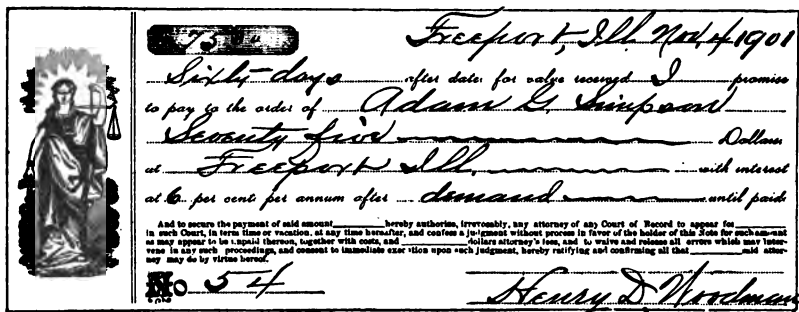 75
Freeport, Ill. Nov. 4 1901
Sixty days after date for value received I promise
to pay to the order of Adam G. Simpson
Seventy five Dollars
at Freeport Ill. with interest
at 6 per cent per annum after demand until paid
And to secure the payment of said amount hereby authorize, irrevocably, any attorney of any Court of Record to appear for
in such Court, in term time or vacation, at any time hereafter, and confess a judgment without process in favor of the holder of this Note for such amount
as may appear to be unpaid thereon, together with costs, and dollars attorney's fees, and to waive and release all errors which may inter-
vene in any such proceedings, and consent to immediate execution upon such judgment, hereby ratifying and confirming all that said attor-
ney may do by virtue hereof.
No 54
Henry D Woodman